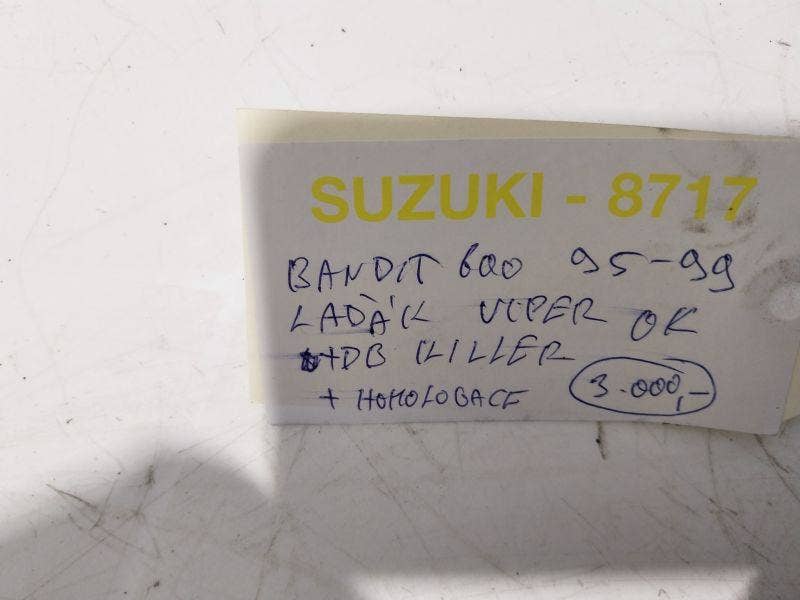 SUZUKI - 8717
BANDIT 600 95-99
LAĎÁK VIPER OK
+DB KILLER
+ HOMOLOGACE 3.000,-